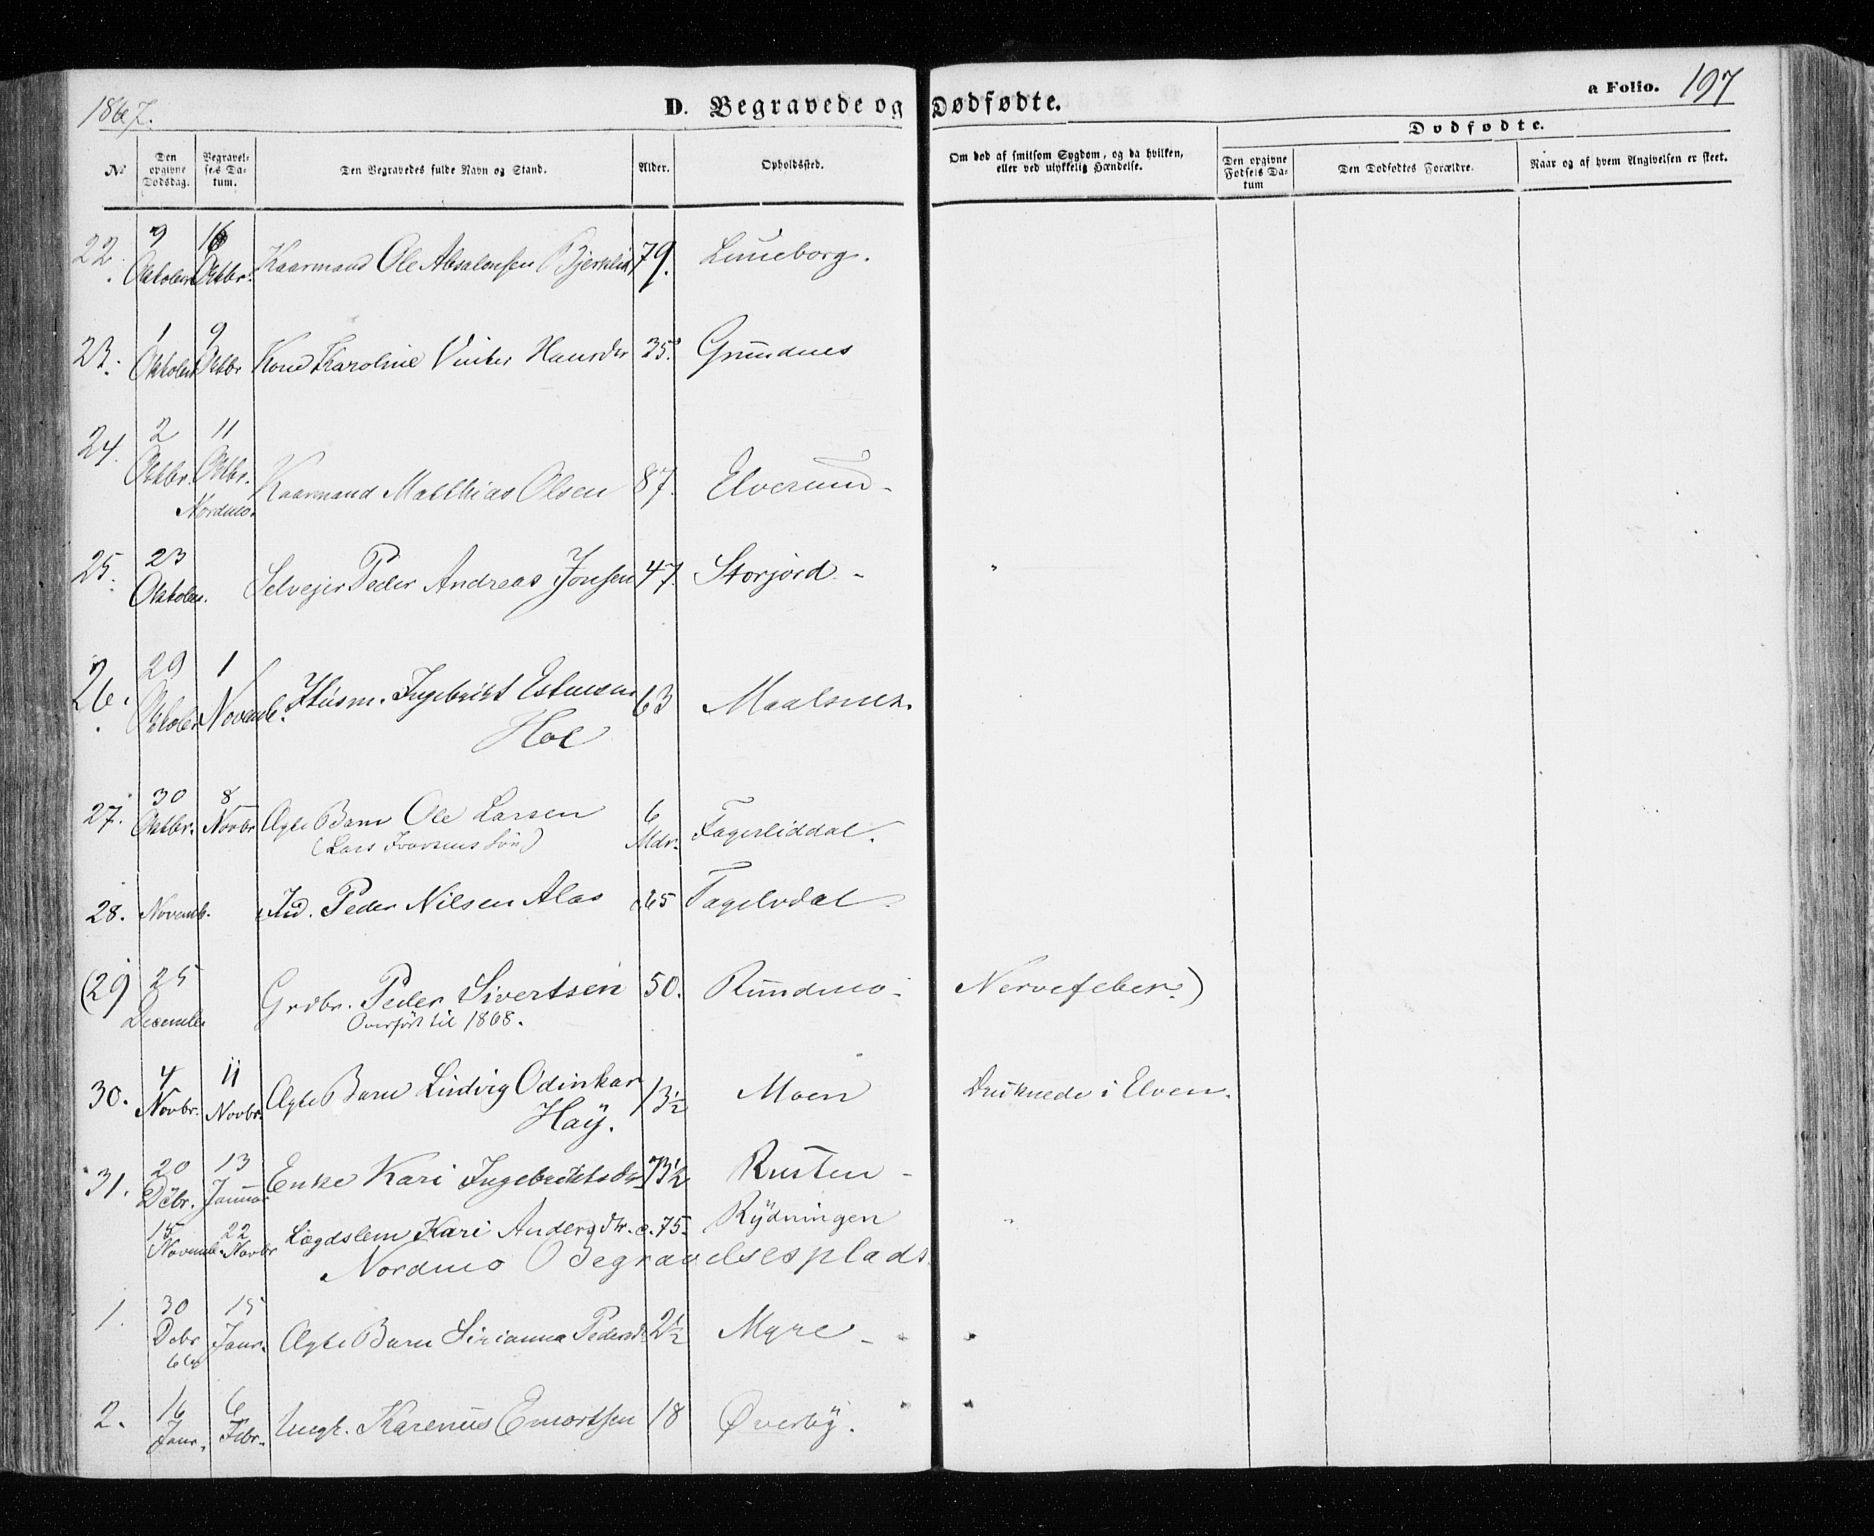 1867.
D. Begravede og Dødfødte.
a Folio. 197
Dødfødte.
No
Den opgivne Dødsdag.
Begravelses Datum.
Den Begravedes fulde Navn og Stand.
Alder.
Opholdssted.
Om død af smitsom Sygdom, og da hvilken, eller ved ulykkelig Hændelse.
Den opgivne Fødsels Datum
Den Dødfødtes Forældre.
Naar og af hvem Angivelsen er skeet.
22. 9 Oktober 16 Oktbr. Kaarmand Ole Absalonsen Bjerklid 79. Luneborg.
23. 1 Oktober 9 Oktbr Kone Karoline Vinter Hansdr 35. Grundnes
24. 2 Oktbr. 11 Oktbr. Kaarmand Matthias Olsen 87. Elverum -
Nordmo.
25. 23 Oktober. Selvejer Peder Andreas Jonsen 47. Storjord -
26. 29 Oktober 1 Novemb. Husm. Ingebrikt Estensen 63 Maalsnes.
Hoel
27. 30 Oktbr. 8 Novbr Ægte Barn Ole Larsen 6 Mdr. Fagerliddal.
(Lars Ivarsens Søn)
28. Novemb. Ind. Peder Nilsen Alas c.65 Tagelvdal -
(29 25 December Grdbr. Peder Sivertsen 50. Rundmo - Nervefeber.)
Overført til 1868.
30. 4 Novbr. 11 Novbr. Ægte Barn Ludvig Odinkar 13½ Moen Druknede i Elven.
Hay.
31. 20 Dcbr. 13 Januar Enke Kari Ingebriktsdr. 73½ Rusten -
15 Novemb. 22 Novbr Lægdslem Kari Andersdtr. c. 75. Rydningen
Nordmo Begravelsesplads.
1. 30 Dcbr 15 Janr. Ægte Barn Sirianna Pedersdr 2½ Myre -
2. 16 Janr. 6 Febr. Ungk. Karenius Emortsen 18 Øverby.